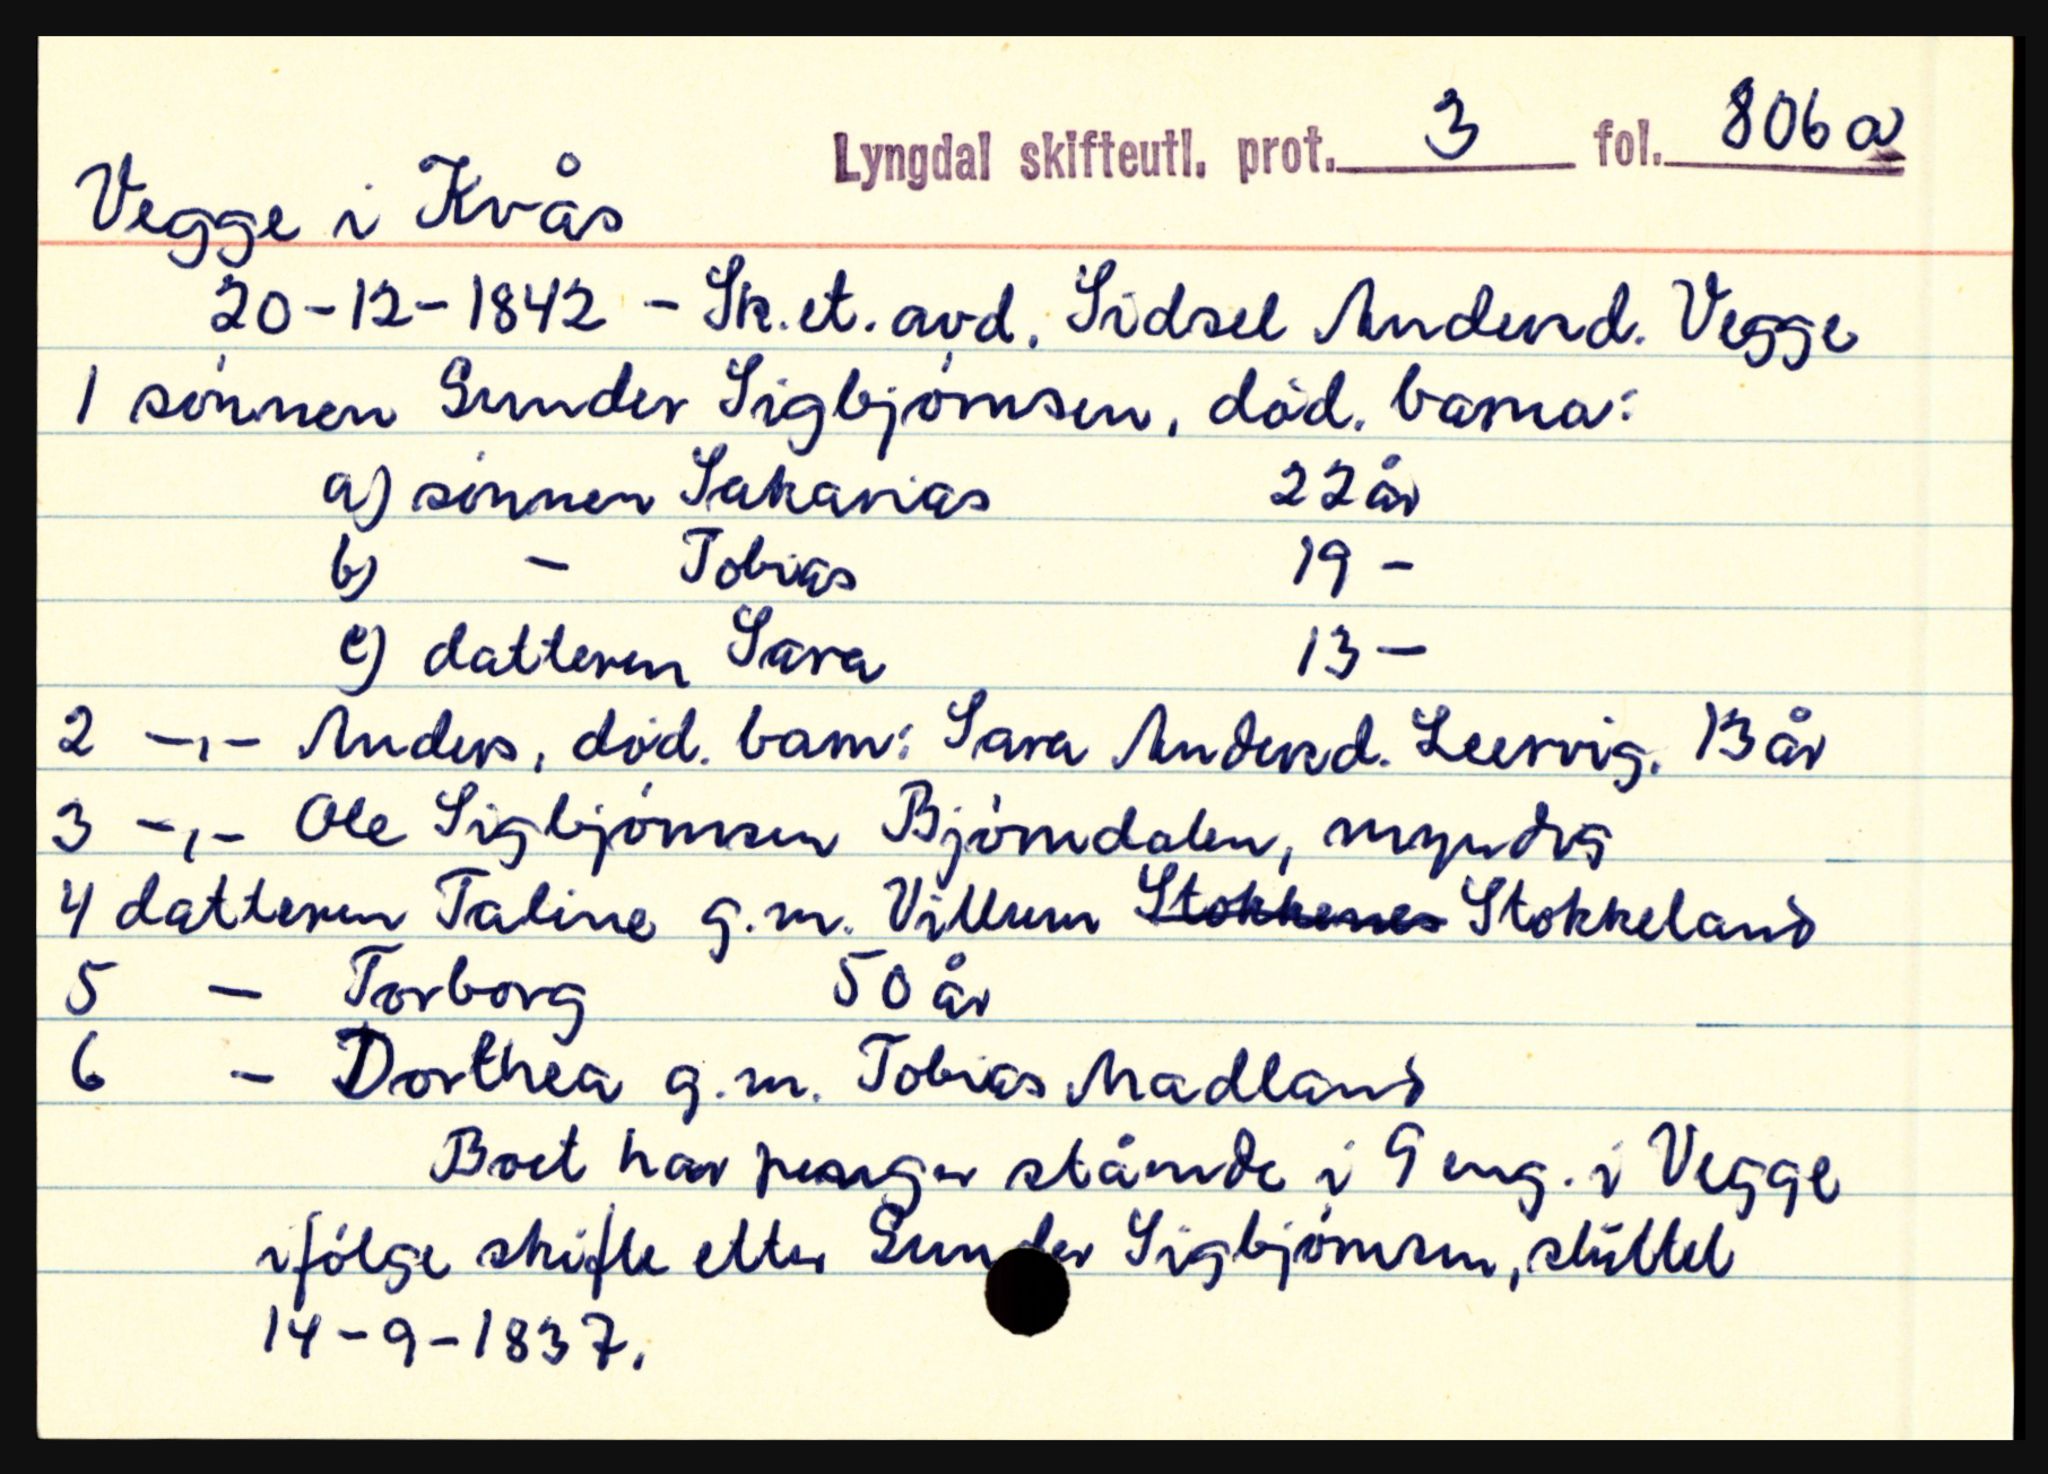 Lyngdal skifteutl. prot. 3 fol. 806a
Vegge i Kvås
20-12-1842 - Sk. et. avd. Sidsel Andersd. Vegge
1 sønnen Gunder Sigbjørnsen, død. barna:
a) sønnen Sakarias 22 år
b) - Tobias 19 -
c) datteren Sara 13 -
2 -,- Anders, død. barn: Sara Andersd. Leervig. 13 år
3 -,- Ole Sigbjørnsen Bjørndalen, myndig
4 datteren Taline g.m. Villum Stokkenes Stokkeland
5 - Torborg 50 år
6 - Dorthea g.m. Tobias Madland
Boet har penger stående i 9 eng. i Vegge
ifølge skifte etter Gunder Sigbjørnsen, sluttet
14-9-1837.